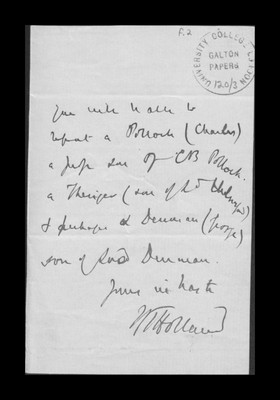 F.2
UNIVERSITY COLLEGE LONDON
GALTON
PAPERS
120/3
You will have to
repeat a Pollock (Charles)
a son of CB Pollock.
a Thesiger (son of Ld Chelmsford)
& perhaps a Denman (George)
son of Lord Denman.
Yours in haste
Holland